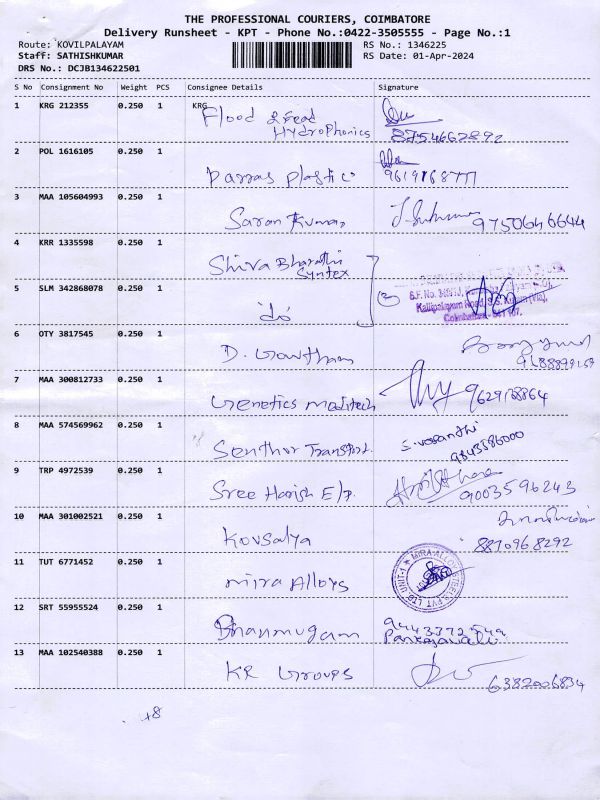 THE PROFESSIONAL COURIERS, COIMBATORE
Delivery Runsheet - KPT - Phone No.:0422-3505555 - Page No.:1
Route: KOVILPALAYAM RS No.: 1346225
Staff: SATHISHKUMAR RS Date: 01-Apr-2024
DRS No.: DCJB134622501
S No Consignment No Weight PCS Consignee Details Signature
1 KRG 212355 0.250 1 KRG
Flood & Feed
Hydrophonics 8754662892
2 POL 1616105 0.250 1
Parras Plastic
3 MAA 105604993 0.250 1
Saran Kumar 9750646644
4 KRR 1335598 0.250 1
Shiva Bharathi
Syntex
5 SLM 342868078 0.250 1
do
6 OTY 3817545 0.250 1
D. Gowtham
7 MAA 300812733 0.250 1
Genetics Meditech
8 MAA 574569962 0.250 1
Senthur Transport. S. vasanthi
9843586000
9 TRP 4972539 0.250 1
Sree Harish E/P. 9003596243
10 MAA 301002521 0.250 1
Kovsalya 8870968292
11 TUT 6771452 0.250 1
Mira Alloys
12 SRT 55955524 0.250 1
Bhanmugam
13 MAA 102540388 0.250 1
KR Groups 6382006834
48